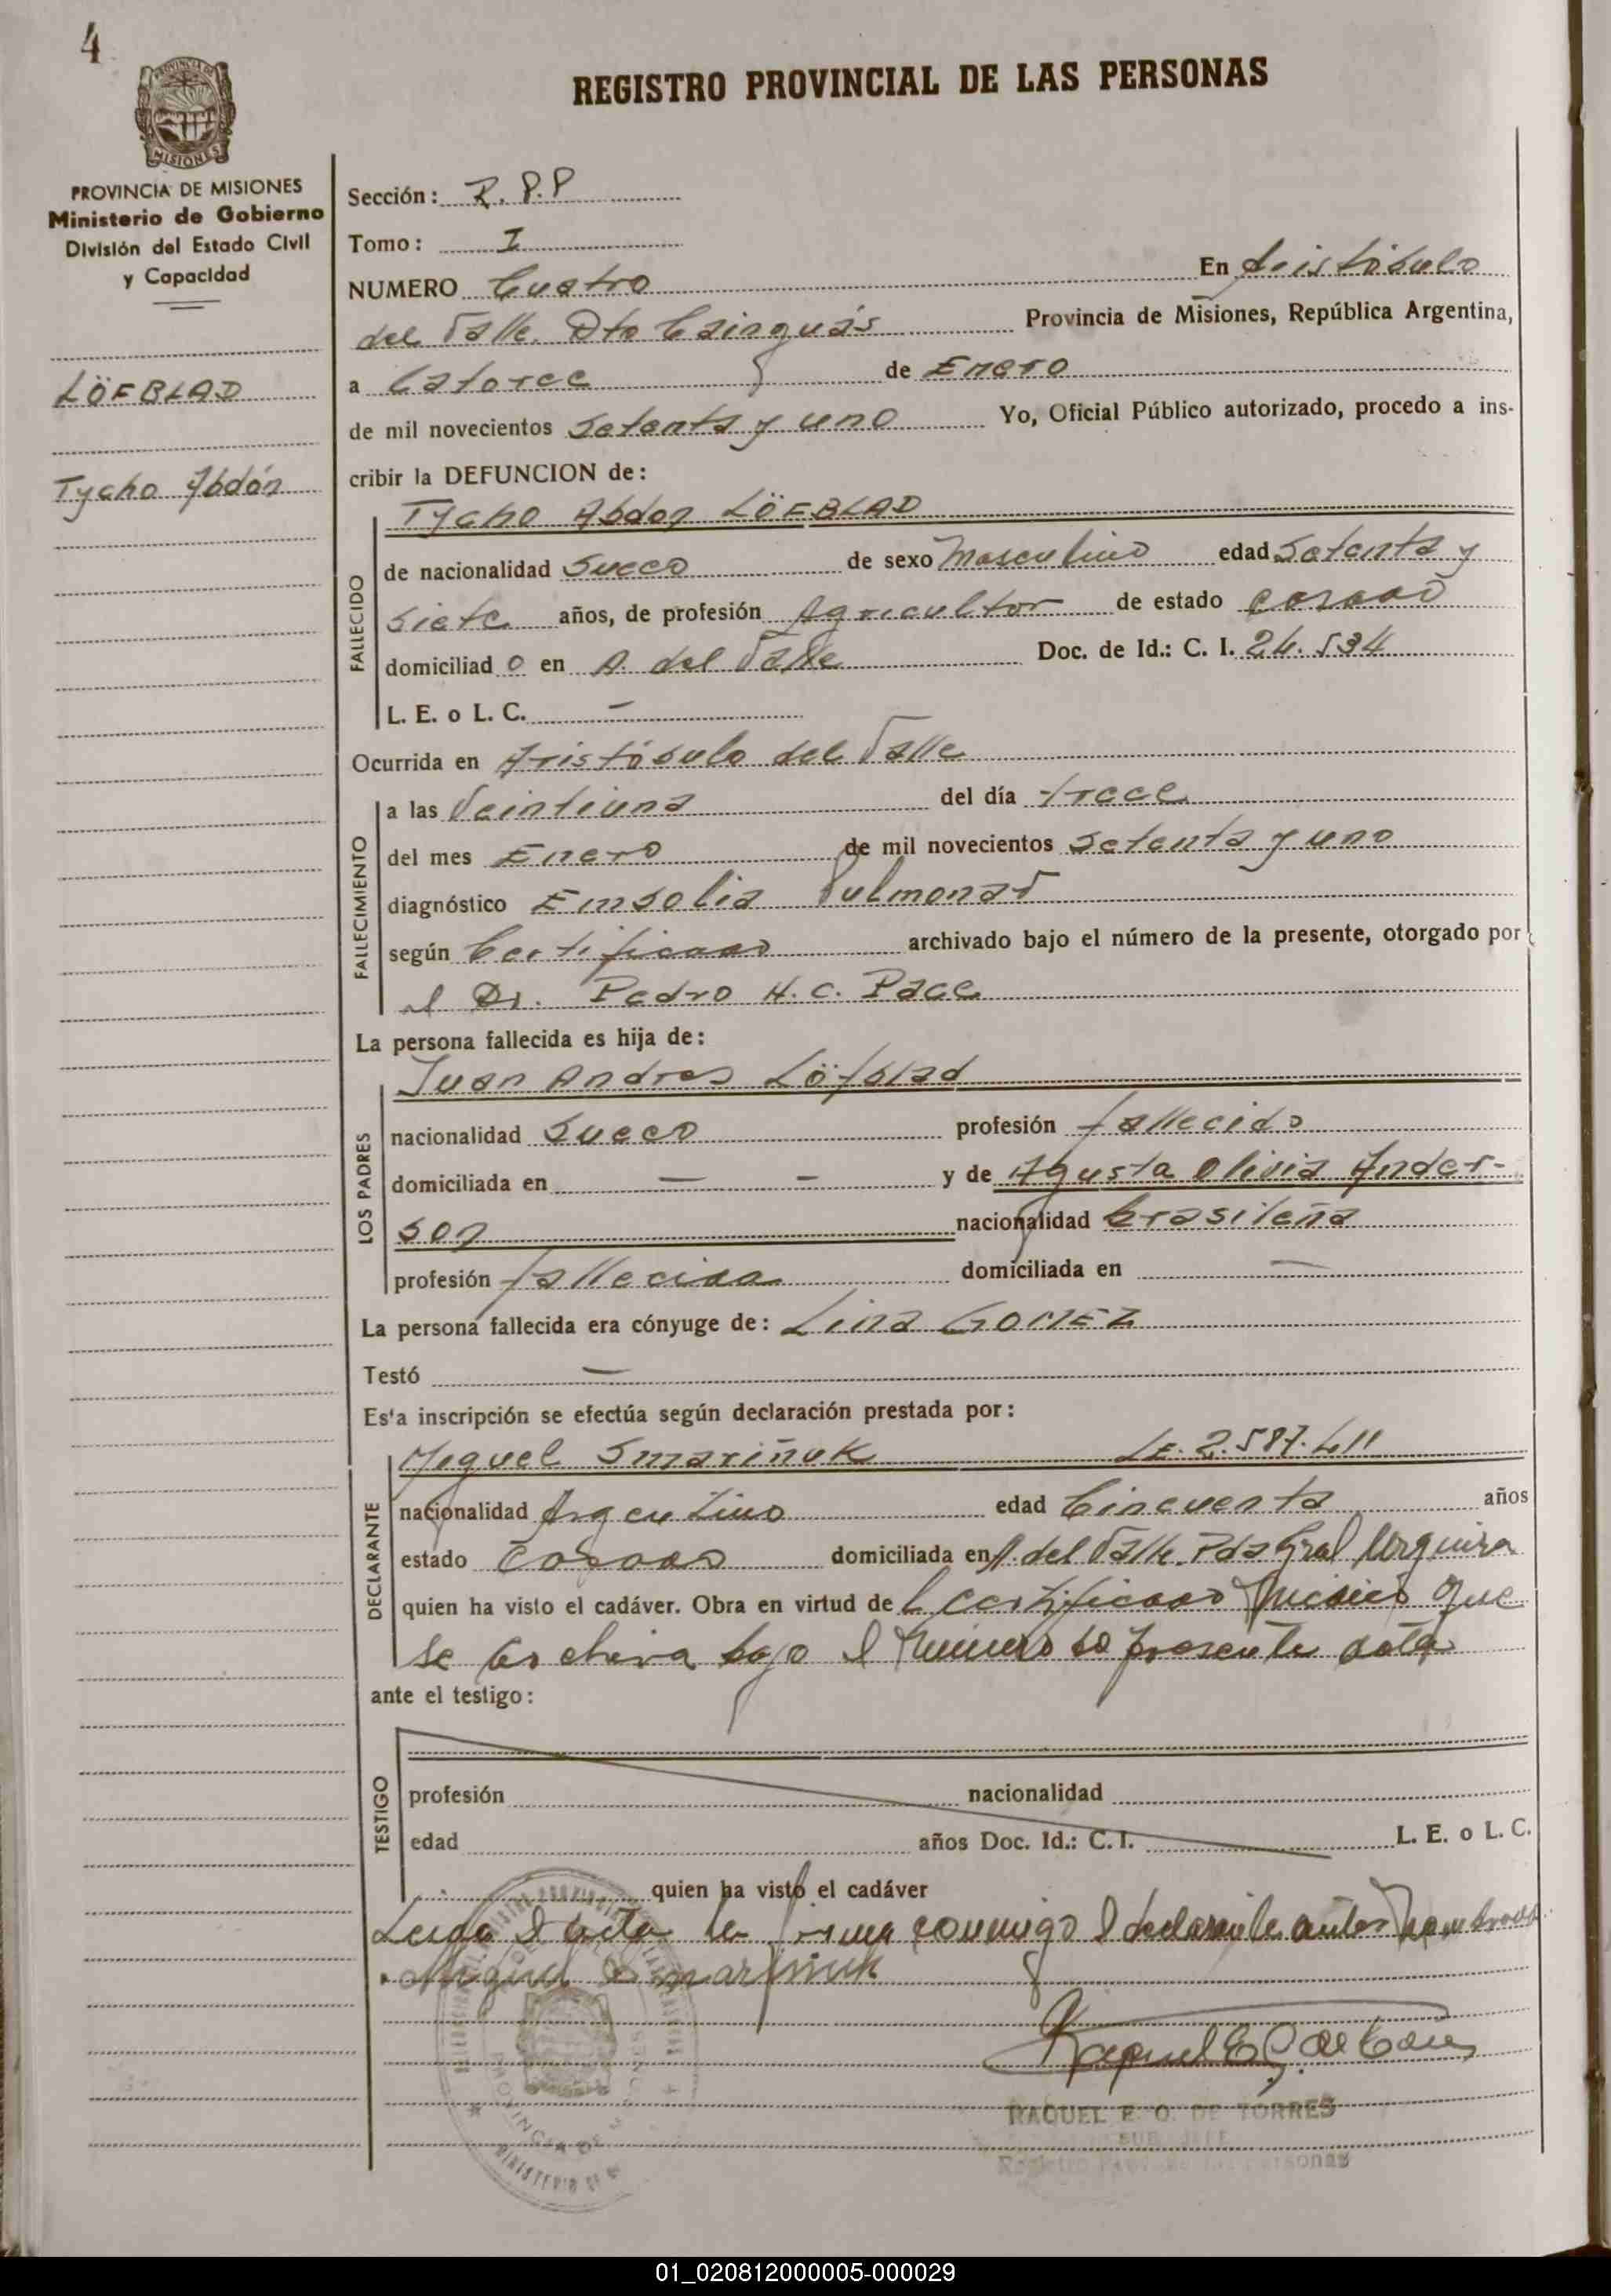 4
PROVINCIA DE MISIONES
REGISTRO PROVINCIAL DE LAS PERSONAS
PROVINCIA DE MISIONES
Ministerio de Gobierno
División del Estado Civil
y Capacidad
LÖFBLAD
Tycho Abdón
Sección: R.P.P
Tomo: I
NUMERO Cuatro En Aristóbulo
del Valle. Dto Cainguás Provincia de Misiones, República Argentina,
a Catorce de Enero
de mil novecientos Setenta y uno Yo, Oficial Público autorizado, procedo a ins-
cribir la DEFUNCION de:
Tycho Abdon LÖFBLAD
FALLECIDO
de nacionalidad Sueco de sexo Masculino edad Setenta y
Siete años, de profesión Agricultor de estado casado
domiciliad o en A. del Valle Doc. de Id.: C. I. 24.534
L. E. o L. C. —
Ocurrida en Aristóbulo del Valle
FALLECIMIENTO
a las Veintiuna del día trece
del mes Enero de mil novecientos Setenta y uno
diagnóstico Embolia Pulmonar
según Certificado archivado bajo el número de la presente, otorgado por
el Dr. Pedro H. C. Pace
La persona fallecida es hija de:
Juan Andres Löfblad
LOS PADRES
nacionalidad Sueco profesión fallecido
domiciliada en — — y de Agusta Olivia Ander-
son nacionalidad brasileña
profesión fallecida domiciliada en —
La persona fallecida era cónyuge de: Lina GOMEZ
Testó —
Esta inscripción se efectúa según declaración prestada por:
Miguel Smariñuk LE. 2.587.411
DECLARANTE
nacionalidad Argentino edad Cincuenta años
estado Casado domiciliada en A. del Valle. Pda Gral Urquiza
quien ha visto el cadáver. Obra en virtud de l certificado Médico que
se archiva bajo el número de presente acta
ante el testigo:
TESTIGO
profesión nacionalidad
edad años Doc. Id.: C. I. L. E. o L. C.
quien ha visto el cadáver
Leida el acta la firma conmigo el declarante antes nombrado
Miguel Smariñuk
RAQUEL E. O. DE TORRES
SUB JEFE
Registro Prov. de las Personas
01_020812000005-000029